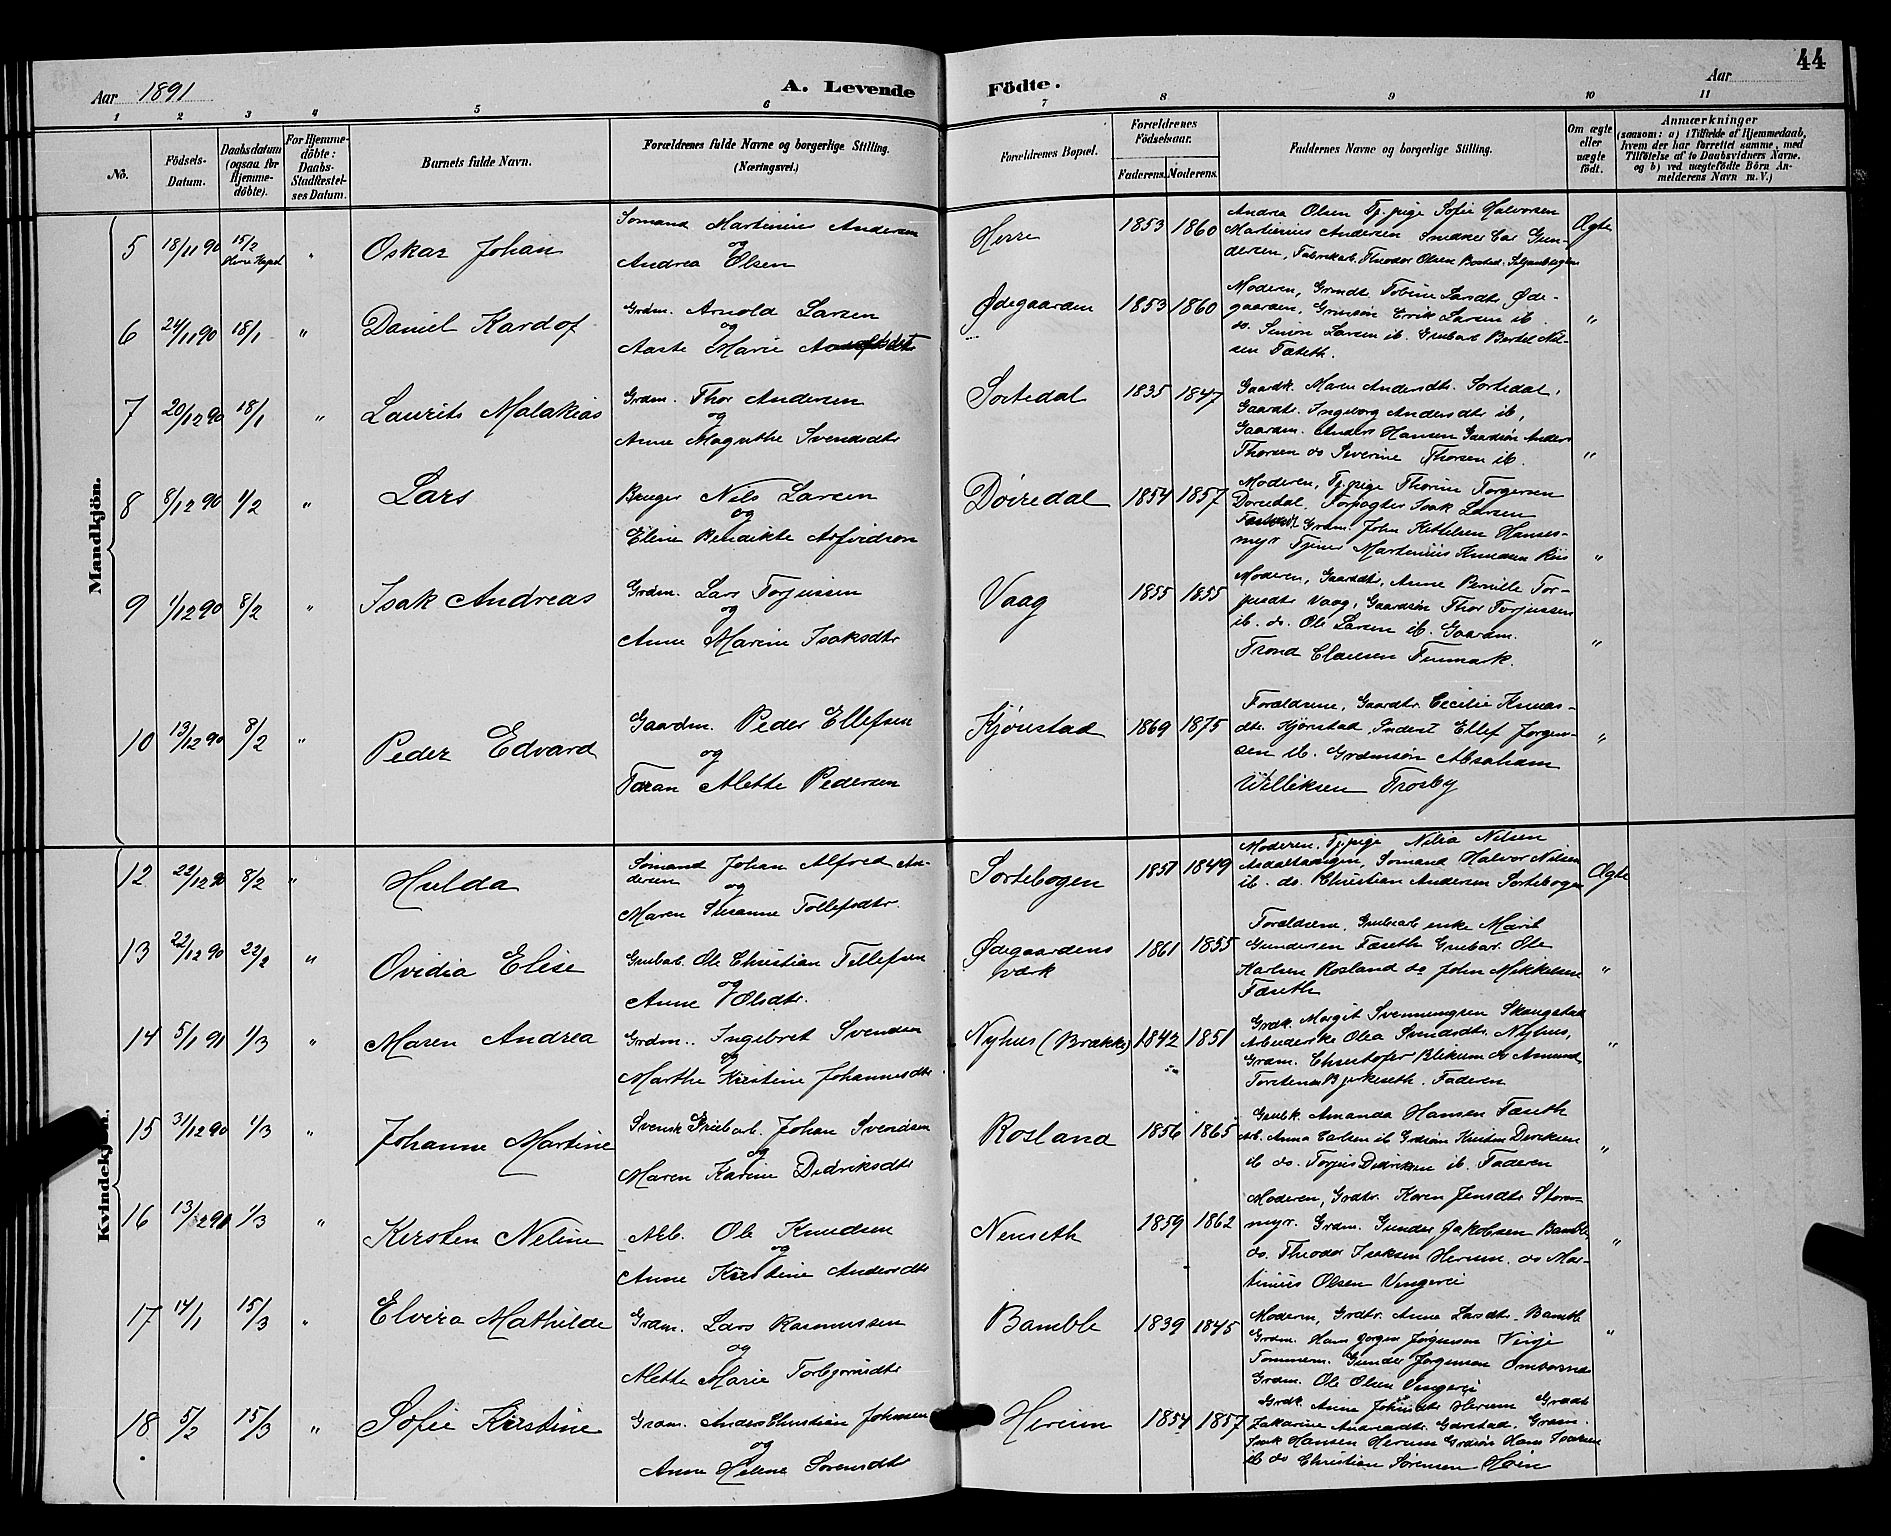 44
Aar 1891
A. Levende Födte.
Aar
1 2 3 4 5 6 7 8 9 10 11
No.
Födsels-Datum.
Daabsdatum (ogsaa for Hjemme-döbte).
For Hjemme-döbte: Daabs-Stadfæstel-ses Datum.
Barnets fulde Navn.
Forældrenes fulde Navne og borgerlige Stilling. (Næringsvei.)
Forældrenes Bopæl.
Forældrenes Födselsaar.
Faderens. Moderens.
Faddernes Navne og borgerlige Stilling.
Om ægte eller uægte födt.
Anmærkninger
(saasom: a) i Tilfælde af Hjemmedaab,
hvem der har forrettet samme, med
Tilföielse af to Daabsvidners Navne.
og b) ved uægtefödte Börn An-
melderens Navn m. V.)
Mandkjön.
5 18/11 90 15/2 Herre Kapel " Oskar Johan
Sømand Martinius Andersen
og
Andrea Olsen
Herre 1853 1860
Andrea Olsen Tj.pige Sofie Halvorsen
Martinius Andersen Snedker Car Gun-
dersen, Fabrikarb. Theodor Olsen
Ægte
6 24/11 90 18/1 " Daniel Kardof
Grdm. Arnold Larsen
og
Aaste Marie
Ødegaarden 1853 1860
Moderen, Grmdt. Tobine Larsdtr Øde-
gaarden, Grmsøn Erik Larsen ib.
do. Simon Larsen ib. Grubarb Berdel Nil-
sen Fæseth.
"
7 20/12 90 18/1 " Laurits Malakias
Grdm. Thor Andersen
og
Anne Magrethe Svendsdtr
Sortedal 1835 1847
Gaardk. Maren Andersdtr. Sortedal,
Gaardtr. Ingeborg Andersdtr ib,
Gaardm. Anders Hansen Gaardsøn Anders
Thorsen do Severine Thorsen ib.
"
8 8/12 90 1/2 " Lars
Bruger Nils Larsen
og
Eline Bendikte Arfvidson
Döiredal 1854 1857
Moderen, Tj.pige Thorine Torgersen
Doredal, Forpagter Isak Larsen
Grdm. John Kittilsen Hanses-
myr Tjener Martinius Knudsen Riis
"
9 1/12 90 8/2 " Isak Andreas
Grdm. Lars Torjussen
og
Anne Marine Isaksdtr
Vaag 1855 1855
Moderen, Gaarddt. Anne Pernille Tor-
jusdtr Vaag, Gaardsøn Thor Torjussen
ib. do. Ole Larsen ib. Gaardm.
Trond Clausen Finmark.
"
10 13/12 90 8/2 " Peder Edvard
Gaardm. Peder Ellefsen
og
Taran Alette Pedersen
Kjönstad 1869 1875
Forældrene, Gaardtr Cecilie Knuds-
dtr. Kjönstad, Inderst Ellef Jørgen-
sen ib. Grdmsön Abraham
Williksen Trosby
"
Kvindekjön.
12 22/12 90 8/2 " Hulda
Sömand Johan Alfred An-
dersen
og
Maren Susanne Tollefsdtr.
Sortebogen 1851 1849
Moderen, Tj.pige Nilia Nilsen
Asdaltangen, Sømand Halvor Nilsen
ib. do. Christian Andersen Sortebogen
Ægte
13 22/12 90 22/2 " Ovidia Elise
Grubarb. Ole Christian Tellefsen
og
Anne Olsdtr.
Ødegaardens
værk 1861 1855
Forældrene, Grubearb enke Marit
Gundersen Fæseth Grubar. Ole
Karlsen Rosland do John Mikkelsen
Fæseth
"
14 5/1 91 1/3 " Maren Andrea
Grdm. Ingebret Svendsen
og
Marthe Kirstine Johannesdtr.
Nyhus (Brække) 1842 1851
Grdk. Margit Svennungsen Skaugstad
Arbeiderske Olea Svendsdtr. Nyhus,
Grdm. Christofer Blekum do Amund
Torstensen Bjerkeseth. Faderen
"
15 31/12 90 1/3 " Johanne Martine
Svensk Grubarb. Johan Svendsen
og
Maren Karine Didriksdtr
Rosland 1856 1865
Grubk. Amanda Hansen Fæseth
Arb. Anna Carlsen ib Grdsøn Kristen Diriksen
ib do. Torjus Didriksen ib. Faderen
"
16 13/12 90 1/3 " Kirsten Neline
Arb. Ole Knudsen
og
Anne Kirstine Andersdtr
Nenseth 1859 1862
Moderen, Grdtr. Karen Jensdtr Storm-
myr. Grdm. Gunder Jakobsen Bamble,
do. Theodor Isaksen Herum. do Mar-
tinius Olsen Vingerei
"
17 14/1 15/3 " Elvira Mathilde
Grdm. Lars Rasmussen
og
Alette Marie Torbjørnsdtr
Bamble 1839 1845
Moderen, Grdtr. Anne Larsdtr. Bamble
Grdm. Hans Jørgen Jørgensen
Tømmerm. Gunder Jørgensen
Grdm. Ole Olsen Vingerei
"
18 5/2 15/3 " Sofie Kirstine
Grdm. Anders Christian Johnsen
og
Anne Helene Sørensdtr
Herum 1854 1857
Grdk. Anne Johnsdtr Herum Grdtr
Zakarine Andreasdtr. Gjerstad, Grdm.
Isak Hansen Herum Grdsön Hans Isaksen
ib do Christian Sörensen Höen
"